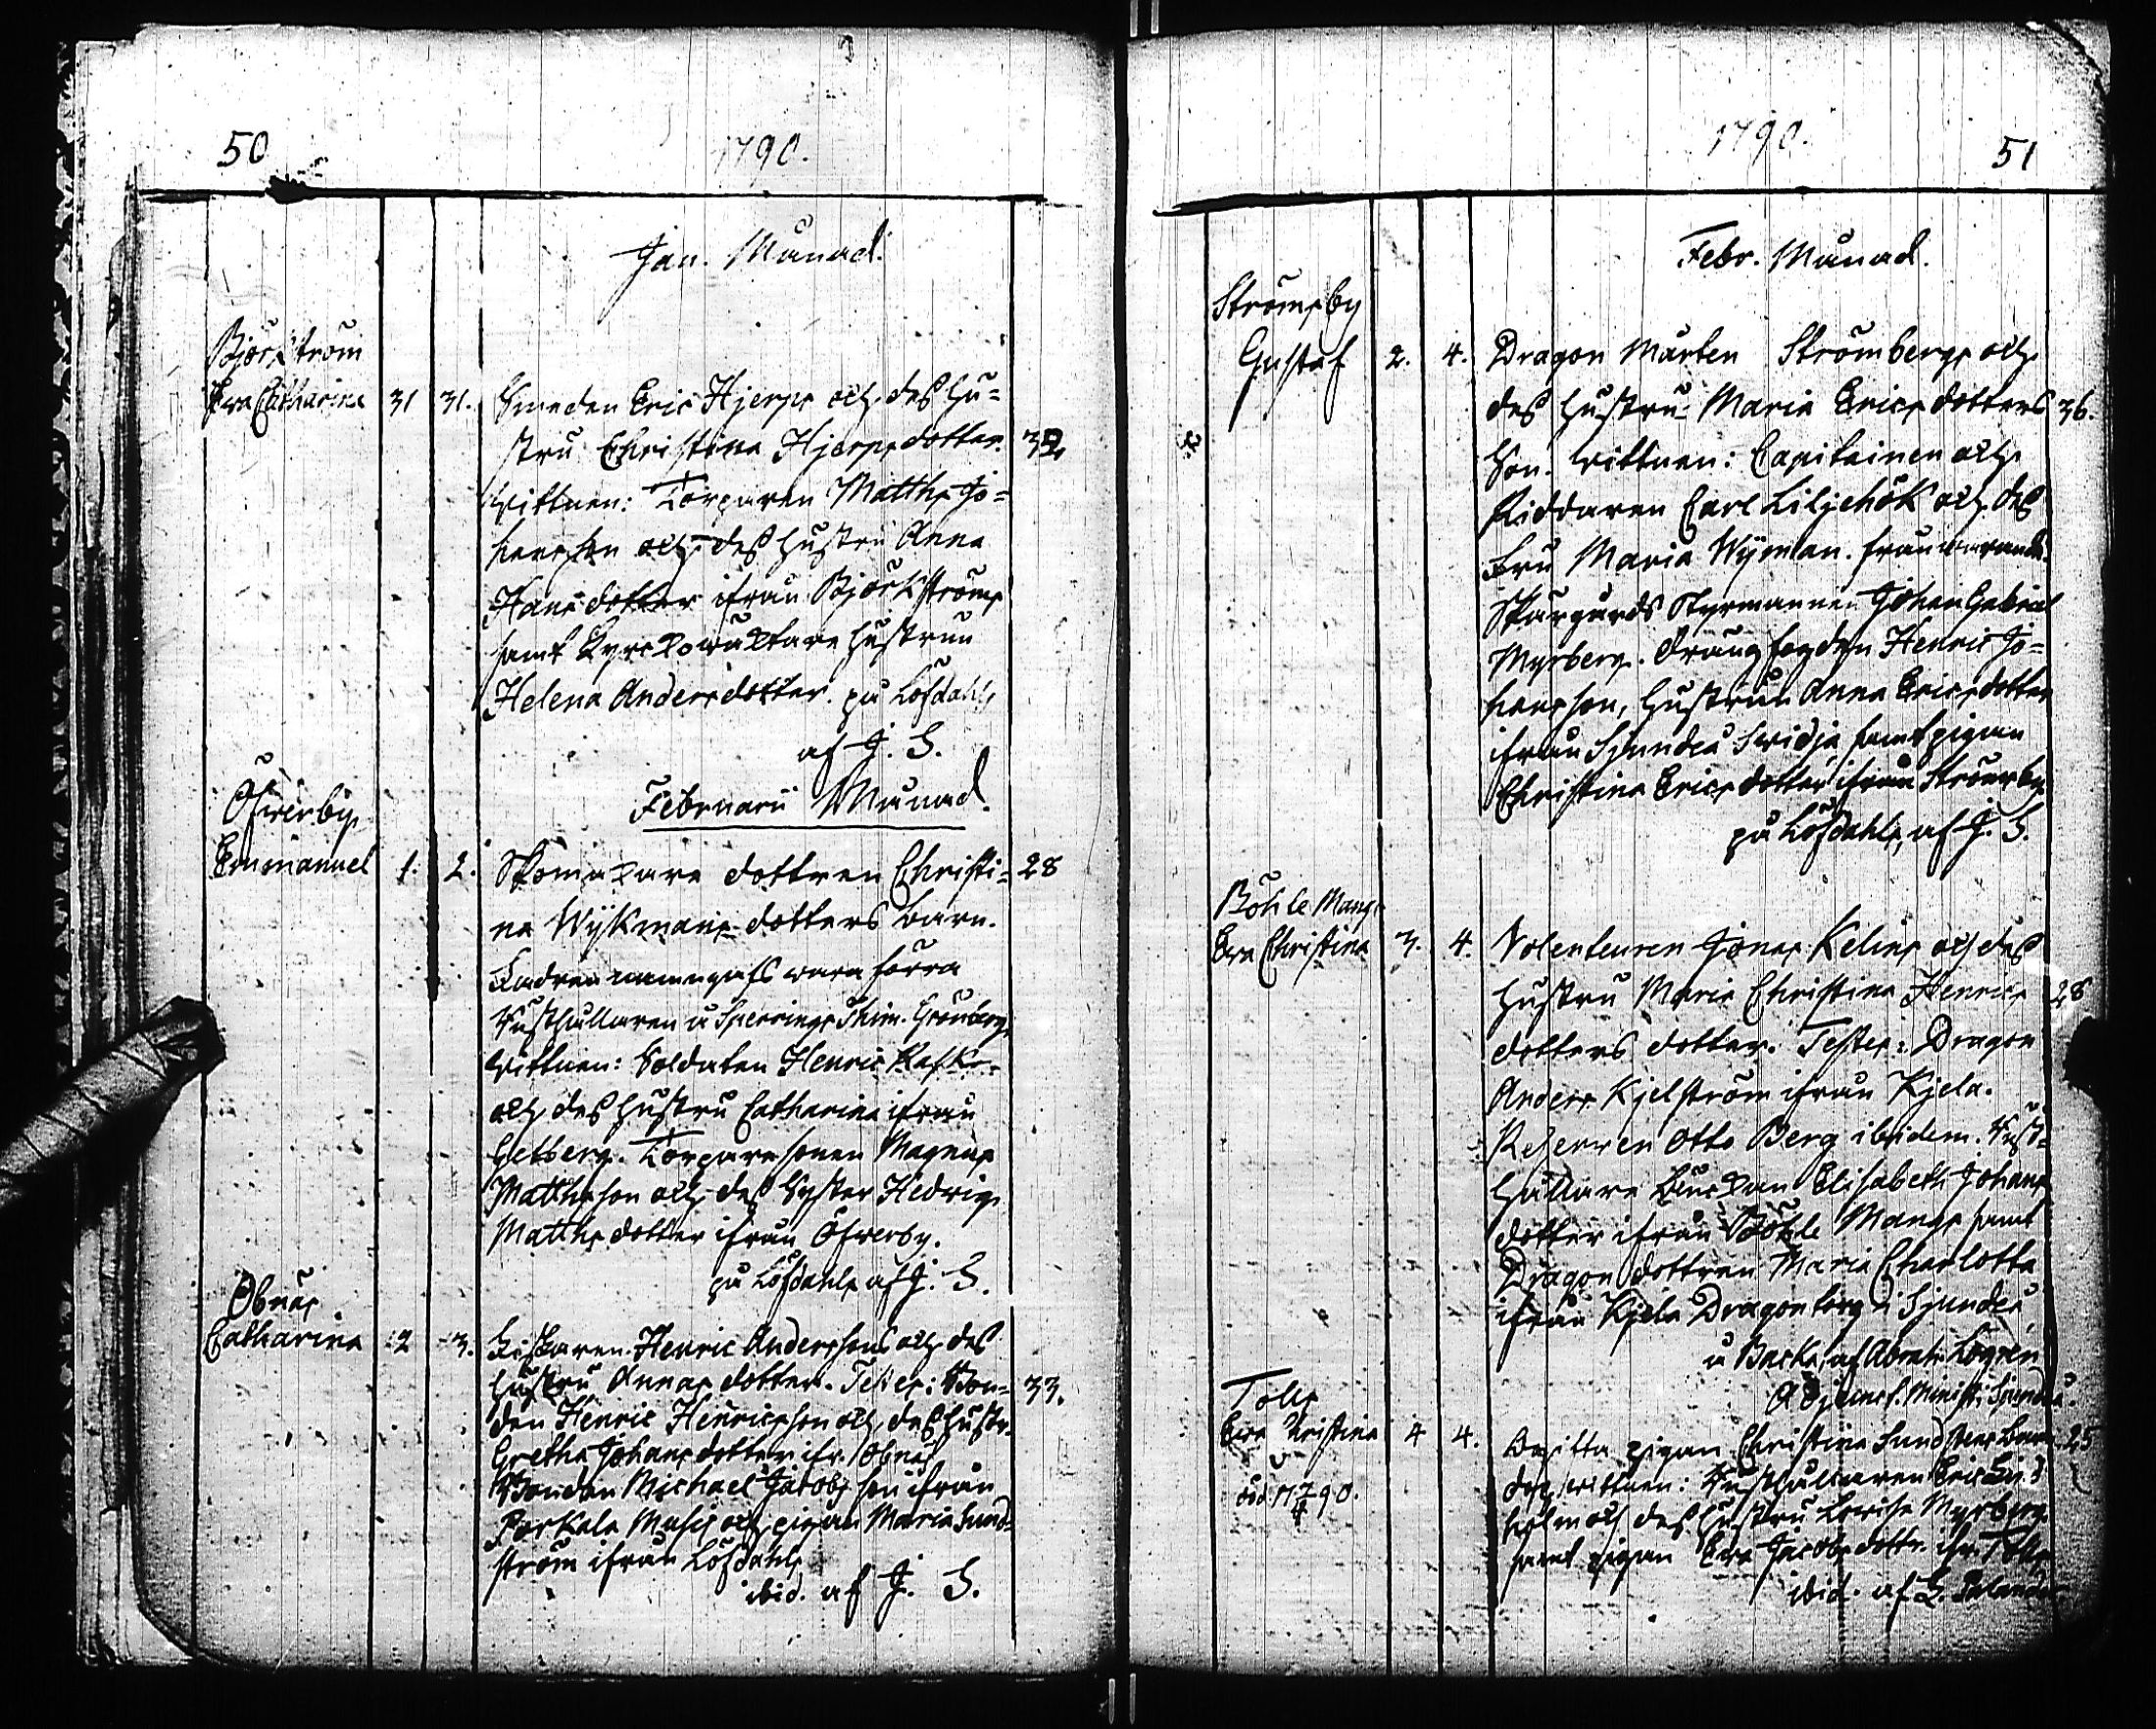 50
1790.
Jan. Månad.
Björkström
Ewa Catharina 31 31. Smeden Eric Hjerps och deß hu=
stru Christina Hjerpsdotter. 32
Wittnen: Torparen Matths Jo=
hansson och deß hustru Anna
Hansdotter ifrån Björkströms
samt Kyrckowäktare hustrun
Helena Andersdotter. på Lofsdahls
af J. S.
Februarii Månad.
Öfwerby
Emmanuel 1. 2. Skomakare dottren Christi= 28
na Wykmans dotters barn.
Fadren namngafs wara förra
Rusthållaren å Sperrings Grönberg.
Wittnen: Soldaten Henric
och deß hustru Catharina ifrån
Getberg. Torpare sonen Magnus
Matthsson och deß Syster Hedwig
Matthsdotter ifrån Öfwerby.
på Lofsdahls af J. S.
Obnäs
Catharina 2 3. Fiskaren Henric Anderssons och deß
hustru Annas dotter. Testes: Bon= 33.
den Henric Henricsson och deß hustr.
Gretha Johansdotter ifr. Obnäs
Bonden Michael Jacobsson ifrån
Porkala och pigan Maria Sund=
ström ifrån Lofsdahls
ibid. af J. S.
1790.
51
Febr. Månad.
Strömsby
Gustaf 2. 4. Dragon Mårten Strömbergs och
deß hustru Maria Ericsdotters 36.
Son. Wittnen: Capitainen och
Riddaren Carl Liljehök och deß
Fru Maria Wijman. frånwarande.
Skärgårds Styrmannen Johan Gabriel
Myrberg. Drängfogden Henric Jo=
hansson, hustrun Anna Ericsdotter
ifrån Sjundeå Swidja samt pigan
Christina Ericsdotter ifrån Strömsby
på Lofsdahls, af J. S.
Böhle Mangs
Ewa Christina 3. 4. Volenteuren Jonas Kelins och deß
hustru Maria Christina Henrics 28
dotters dotter. Testes: Dragon
Anders Kjelström ifrån Kjela.
Reserven Otto Berg ibidem. Rust=
hållare Enckan Elisabeth Johans
dotter ifrån Böhle Mangs samt
Dragon dottren Maria Charlotta
ifrån Kjela Dragontorp i Sjundeå
å Backa, af Abrah. Logren
Adjunct. Minist. Sjundeå.
Tolls
Ewa Christina 4 4. pigan Christina Sundstens barn 25
död 1790. dop wittnen: Rusthållaren Eric
holm och deß hustru Lovisa Myrberg
samt pigan Ewa Jacobsdottr. ifr. Tolls
ibid. af